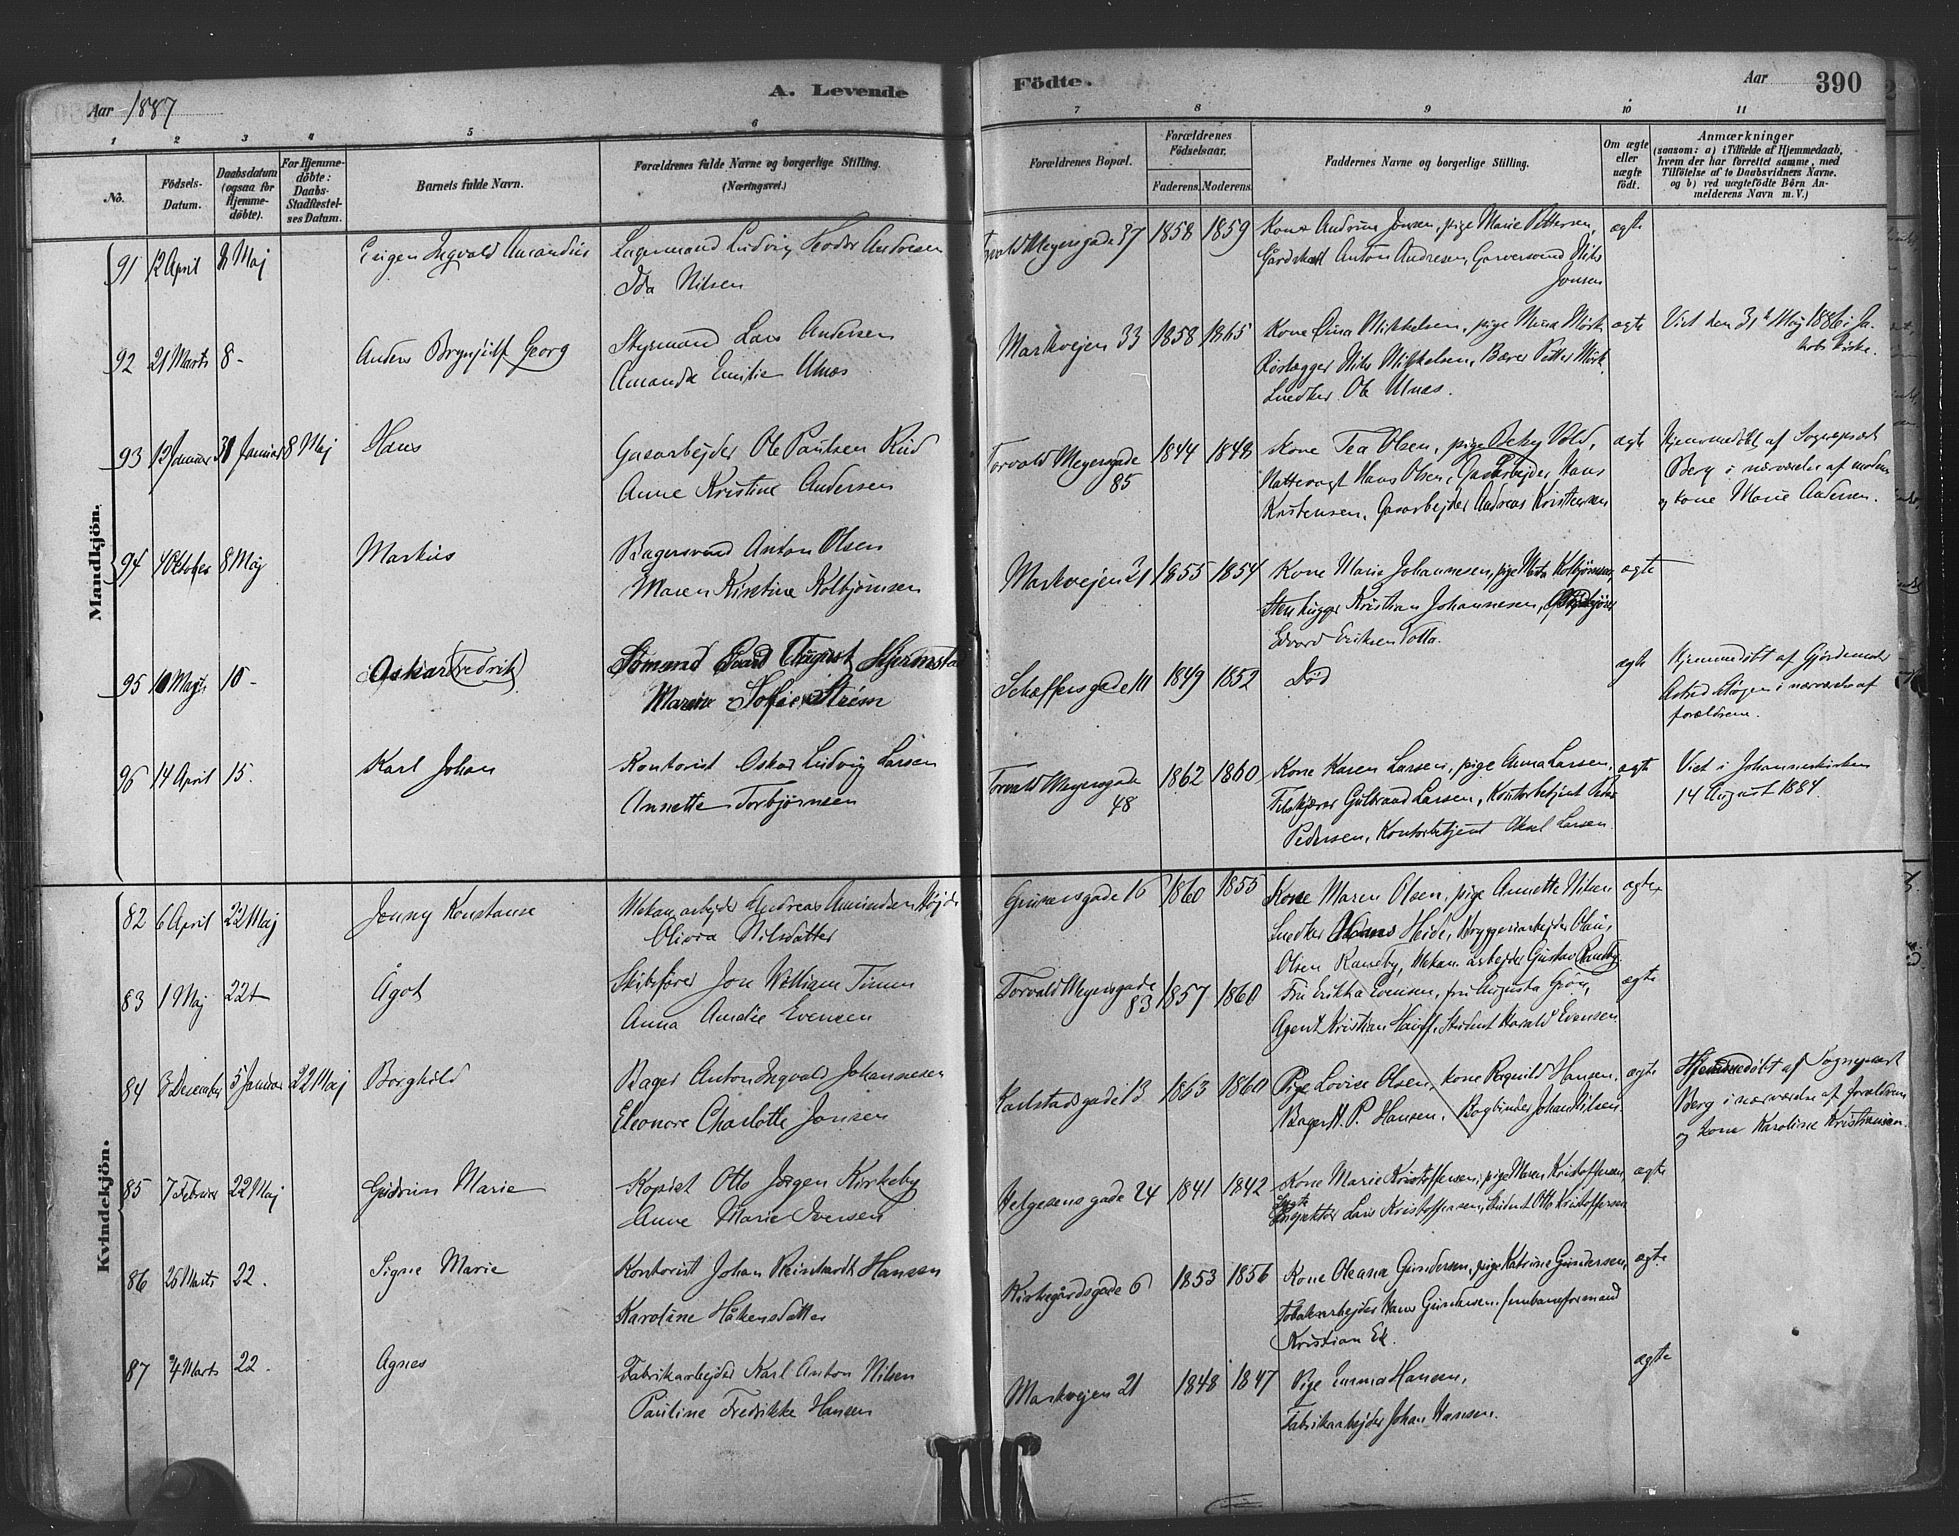 Aar 1887
A. Levende
Födte.
Aar
390
1 2 3 4 5 6 7 8 9 10 11
No.
Födsels-
Datum.
Daabsdatum
(ogsaa for
Hjemme-
döbte).
For Hjemme-
döbte:
Daabs-
Stadfæstel-
ses Datum.
Barnets fulde Navn.
Forældrenes fulde Navne og borgerlige Stilling.
(Næringsvei.)
Forældrenes Bopæl.
Forældrenes
Födselsaar.
Faderens.
Moderens.
Faddernes Navne og borgerlige Stilling.
Om ægte
eller
uægte
födt.
Anmærkninger
(saasom: a) i Tilfælde af Hjemmedaab,
hvem der har forrettet samme, med
Tilföielse af to Daabsvidners Navne.
og b) ved uægtefödte Börn An-
melderens Navn m. V.)
Mandkjön.
91 12 April 8 Maj Eugen Ingvald Amandus
Ludvig Teodor Andresen
Ida Nilsen
Torvald Meyersgade 37 1858 1859
Kone Andrine Jonsen, pige Marie Pettersen,
Anton Andresen, Garversvend Nils
Jonsen
ægte
92 21 Marts 8 - Anders Brynjulf Georg
Styrmand Lars Andersen
Amanda Emilie Ulnæs
Markvejen 33 1858 1865
Kone Dina Mikkelsen, pige Mina Mörk
Rörlægger Nils Mikkelsen, Bærer Petter Mörk
Snedker Ole Ulnæs.
ægte
Viet den 31te Maj 1886 i Ja-
kobs Kirke.
93 12 Januar 31 Januar 8 Maj Hans
Gasarbejder Ole Paulsen Rud
Anne Kristine Andersen
Torvald Meyersgade
85
1844 1848
Kone Tea Olsen, pige Betzy Vold,
Nattevagt Hans Olsen, Gasarbejder Hans
Kristensen, Gasarbejder Andreas Kristiansen
ægte
Hjemmedöbt af Sogneprest
Berg i nærværelse af moderen
og kone Marie Andersen.
94 4 Oktober 8 Maj Markus
Bagersvend Anton Olsen
Maren Kristine Kolbjörnsen
Markvejen 21 1855 1854
Kone Marie Johannesen, pige Meta Kolbjörnsen,
Stenhugger Kristian Johannesen,
Edvard Eriksen Totta.
ægte
95 10 Marts 10 - Oskar (Fredrik)
Sömand Evard August Hjermsta
Marie Sofie Ström
Schæffersgade 11 1849 1852
Död
ægte
Hjemmedöbt af Gjordemoder
i nærværelse af
forældrene.
96 14 April 15. Karl Johan
Kontorist Oskar Ludvig Larsen
Annette Torbjörnsen
Torvald Meyersgade
48
1862 1860
Kone Karen Larsen, pige Anna Larsen,
Gulbrand Larsen, Kontorbetjent Peder
Pedersen, Kontorbetjent Aksel Larsen.
ægte
Viet i Johanneskirken
14 August 1884
Kvindekjön.
82 6 April 22 Maj Jenny Konstanse
Mekan. arbejder Andreas Amundsen
Olivia Nilsdatter
Grünersgade 16 1860 1855
Kone Maren Olsen, pige Annette Nilsen
Snedker Hans Heide, Bryggeriarbejder Olaus
Olsen Ramsby, Mekan. arbejder Gustav Ramsby.
ægte
83 1 Maj 22 Ågot
Skibsförer Jon William Timm
Anna Amalie Evensen
Torvald Meyersgade
83
1857 1860
Fru Erikka Evensen, fru Augusta Grön,
Agent Kristian Hauff, Student Harald Evensen
ægte
84 3 Desember 5 Januar 22 Maj Borghild
Bager Anton Ingvald Johannesen
Eleonore Charlotte Jonsen
Karlstadsgade 13 1863 1860
Pige Lovise Olsen, kone Ragnild Hansen,
Bager H. P. Hansen, Bogbinder Johan Nilsen
ægte
Hjemmedöbt af Sogneprest
Berg i nærværelse af forældrene
og kone Karoline Kristiansen.
85 7 Februar 22 Maj Gudrun Marie
Kopist Otto Jörgen Kirkeby
Anne Marie Iversen
Helgesens gade 24 1841 1842
Kone Marie Kristoffersen, pige Maren Kristoffersen,
Inspektör Lars Kristoffersen, Student Otto Kristoffersen
ægte
86 26 Marts 22. Signe Marie
Kontorist Johan Reinhardt Hansen
Karoline Håkensdatter
Kirkegårdsgade 6 1853 1856
Kone Oleana Gundersen, pige Katrine Gundersen,
Tobaksarbejder Hans Gundersen, Jernbaneformand
Kristian Ek.
ægte
87 4 Marts 22. Agnes
Fabrikarbejder Karl Anton Nilsen
Pauline Fredrikke Hansen
Markvejen 21 1848 1847
Pige Emma Hansen,
Fabrikarbejder Johan Hansen.
ægte